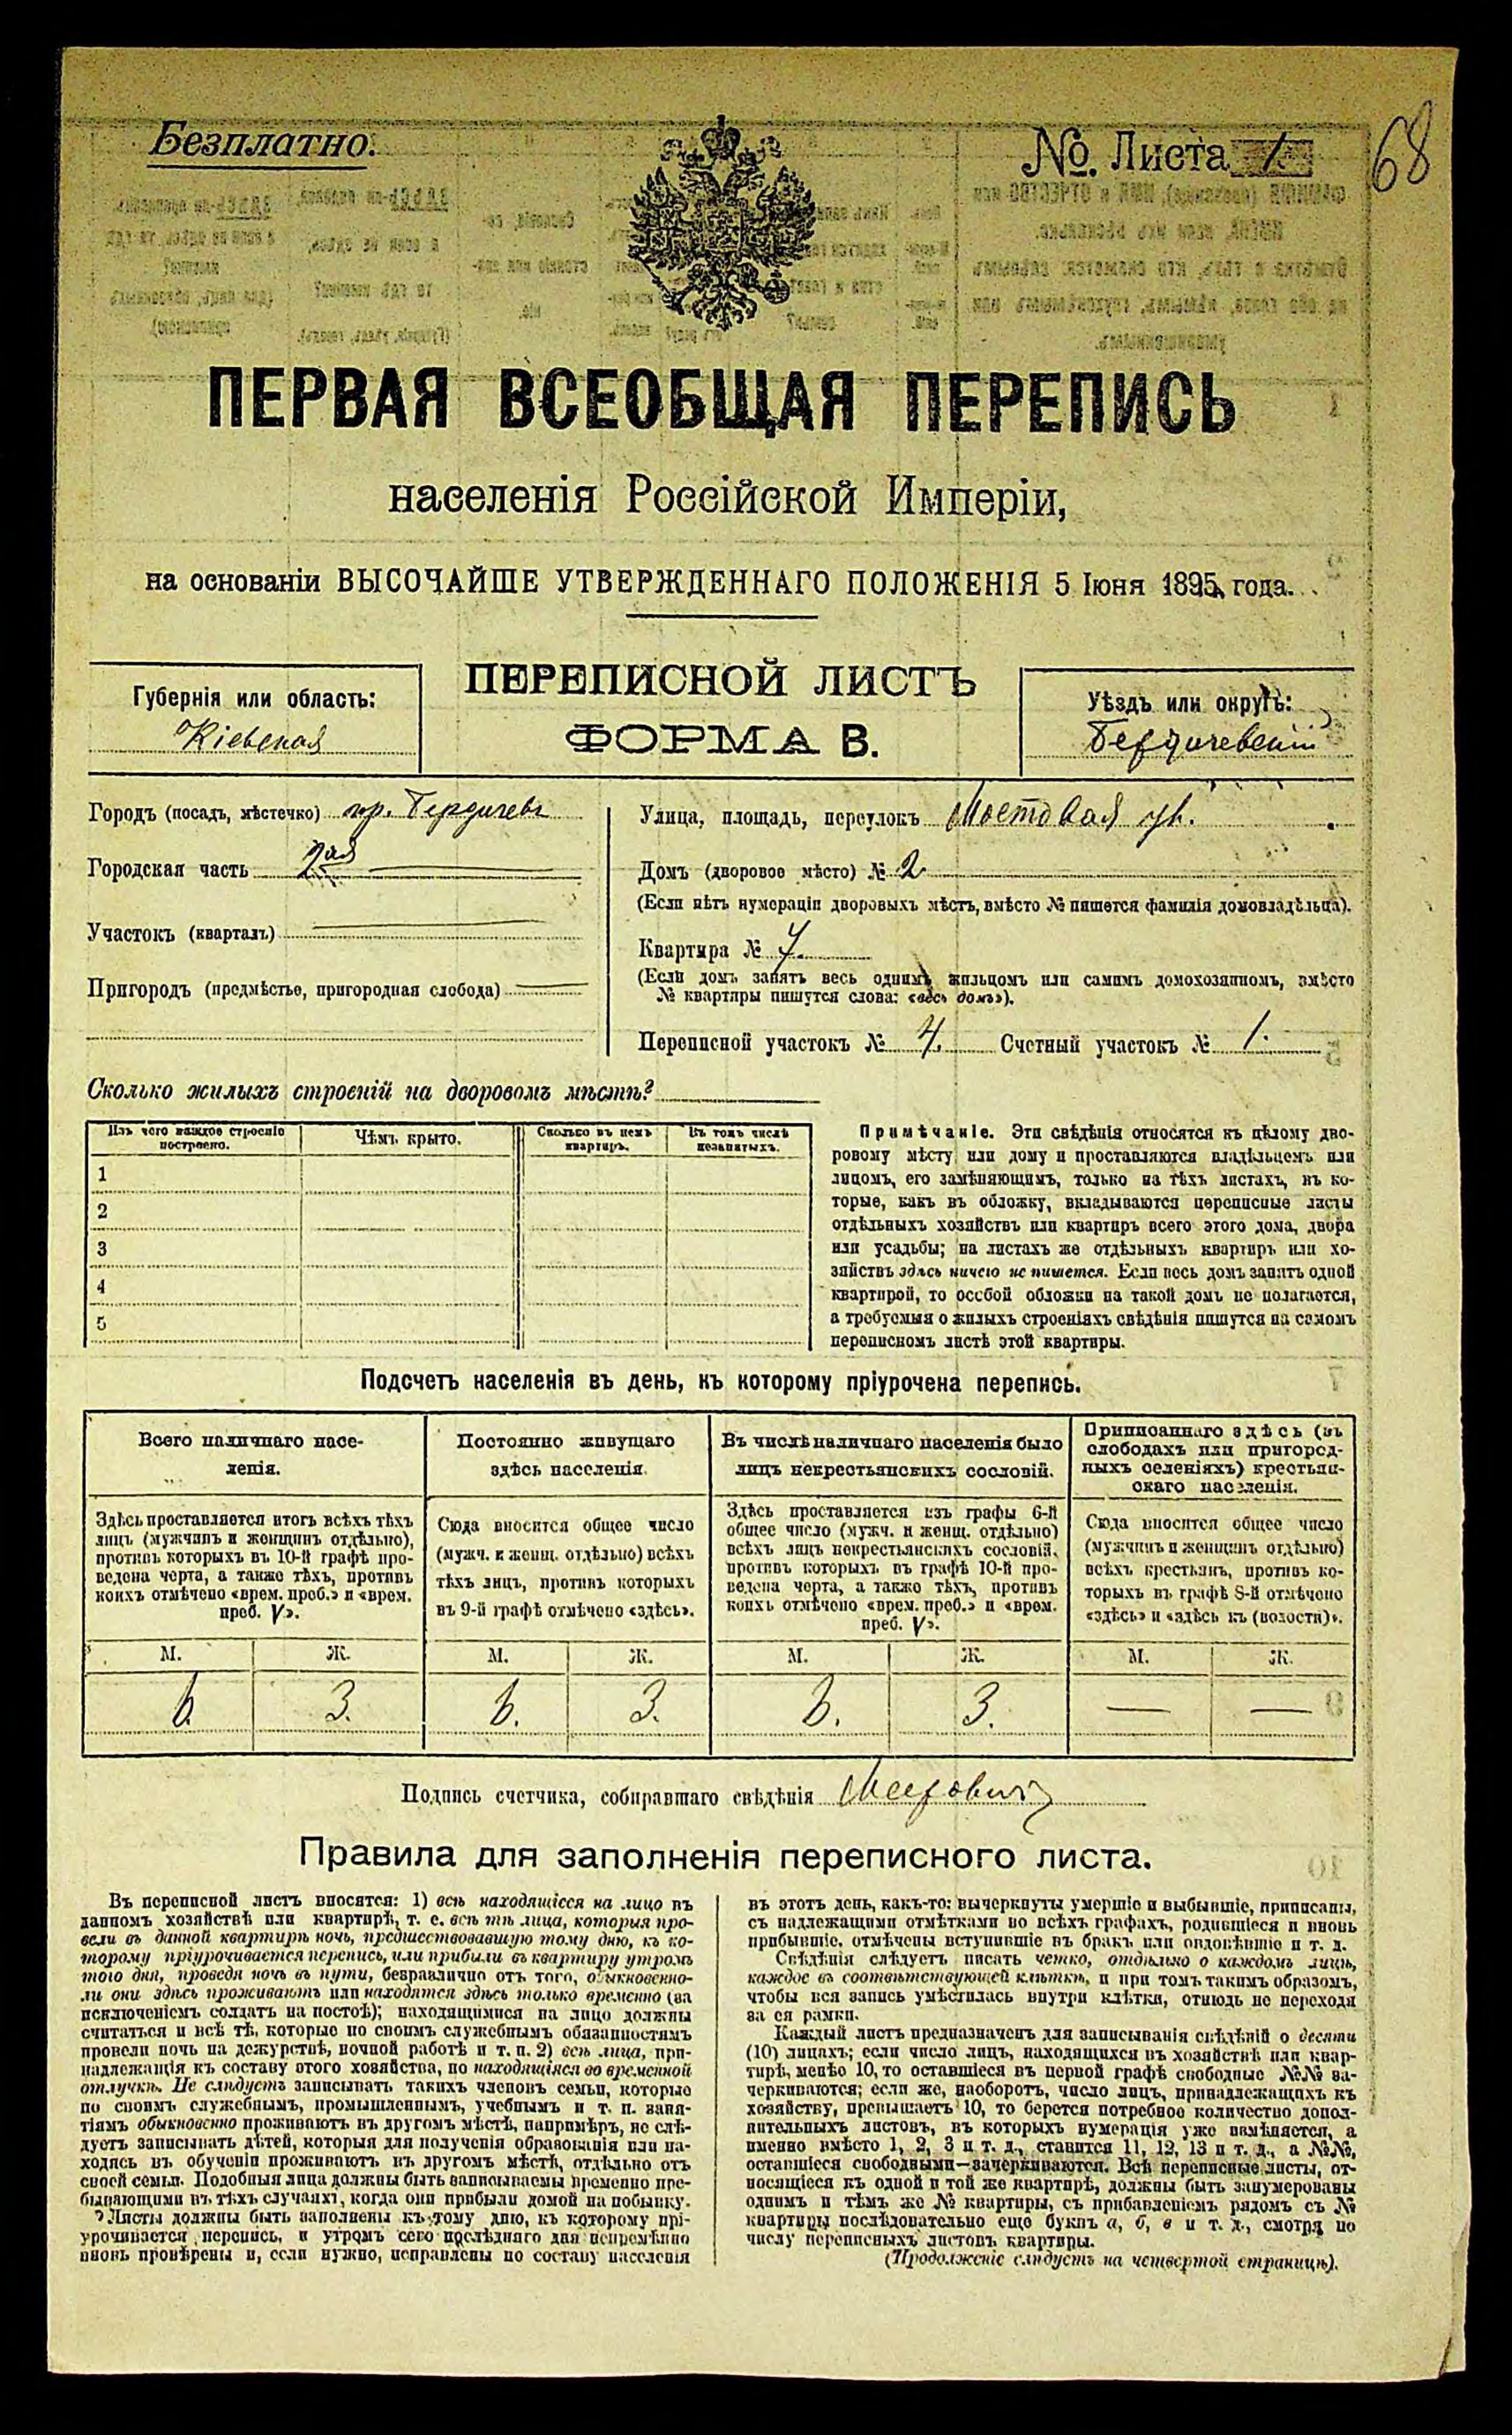 Безплатно.
№. Листа 1.
68
ПЕРВАЯ ВСЕОБЩАЯ ПЕРЕПИСЬ
населенія Россійской Имперіи,
на основаніи ВЫСОЧАЙШЕ УТВЕРЖДЕННАГО ПОЛОЖЕНІЯ 5 Іюня 1895 года.
ПЕРЕПИСНОЙ ЛИСТЪ
ФОРМА В.
Губернія или область:
Кіевская
Уѣздъ или округъ:
Бердичевскій
Городъ (посадъ, мѣстечко) гор. Бердичевъ
Городская часть 2ая
Участокъ (кварталъ)
Пригородъ (предмѣстье, пригородная слобода)
Улица, площадь, переулокъ Мостовая ул.
Домъ (дворовое мѣсто) № 2
(Если нѣтъ нумераціи дворовыхъ мѣстъ, вмѣсто № пишется фамилія домовладѣльца).
Квартира №
(Если домъ занятъ весь однимъ жильцомъ или самимъ домохозяиномъ, вмѣсто
№ квартиры пишутся слова: «весь домъ»).
Переписной участокъ № 4. Счетный участокъ № 1.
Сколько жилыхъ строеній на дворовомъ мѣстѣ?
Изъ чего каждое строеніе
построено.
Чѣмъ крыто.
Сколько въ немъ
квартиръ.
Въ томъ числѣ
незанятыхъ.
1
2
3
4
5
Примѣчаніе. Эти свѣдѣнія относятся къ цѣлому дво-
ровому мѣсту или дому и проставляются владѣльцемъ или
лицомъ, его замѣняющимъ, только на тѣхъ листахъ, въ ко-
торые, какъ въ обложку, вкладываются переписные листы
отдѣльныхъ хозяйствъ или квартиръ всего этого дома, двора
или усадьбы; на листахъ же отдѣльныхъ квартиръ или хо-
зяйствъ здѣсь ничего не пишется. Если весь домъ занятъ одной
квартирой, то особой обложки на такой домъ не полагается,
а требуемыя о жилыхъ строеніяхъ свѣдѣнія пишутся на самомъ
переписномъ листѣ этой квартиры.
Подсчетъ населенія въ день, къ которому пріурочена перепись.
Всего наличнаго насе-
ленія.
Здѣсь проставляется итогъ всѣхъ тѣхъ
лицъ (мужчинъ и женщинъ отдѣльно),
противъ которыхъ въ 10-й графѣ про-
ведена черта, а также тѣхъ, противъ
коихъ отмѣчено «врем. преб.» и «врем.
преб. V».
Постоянно живущаго
здѣсь населенія.
Сюда вносится общее число
(мужч. и женщ. отдѣльно) всѣхъ
тѣхъ лицъ, противъ которыхъ
въ 9-й графѣ отмѣчено «здѣсь».
Въ числѣ наличнаго населенія было
лицъ некрестьянскихъ сословій.
Здѣсь проставляется изъ графы 6-й
общее число (мужч. и женщ. отдѣльно)
всѣхъ лицъ некрестьянскихъ сословій,
противъ которыхъ въ графѣ 10-й про-
ведена черта, а также тѣхъ, противъ
коихъ отмѣчено «врем. преб.» и «врем.
преб. V».
Приписаннаго здѣсь (въ
слободахъ или пригород-
ныхъ селеніяхъ) крестьян-
скаго населенія.
Сюда вносится общее число
(мужчинъ и женщинъ отдѣльно)
всѣхъ крестьянъ, противъ ко-
торыхъ въ графѣ 8-й отмѣчено
«здѣсь» и «здѣсь къ (волости)».
М. Ж. М. Ж. М. Ж. М. Ж.
6. 3. 6. 3. 6. 3. — —
Подпись счетчика, собиравшаго свѣдѣнія
Правила для заполненія переписного листа.
Въ переписной листъ вносятся: 1) всѣ находящіеся на лицо въ
данномъ хозяйствѣ или квартирѣ, т. е. всѣ тѣ лица, которыя про-
вели въ данной квартирѣ ночь, предшествовавшую тому дню, къ ко-
торому пріурочивается перепись, или прибыли въ квартиру утромъ
того дня, проведя ночь въ пути, безразлично отъ того, обыкновенно-
ли они здѣсь проживаютъ или находятся здѣсь только временно (за
исключеніемъ солдатъ на постоѣ); находящимися на лицо должны
считаться и всѣ тѣ, которые по своимъ служебнымъ обязанностямъ
провели ночь на дежурствѣ, ночной работѣ и т. п. 2) всѣ лица, при-
надлежащія къ составу этого хозяйства, но находящіяся во временной
отлучкѣ. Не слѣдуетъ записывать такихъ членовъ семьи, которые
по своимъ служебнымъ, промышленнымъ, учебнымъ и т. п. заня-
тіямъ обыкновенно проживаютъ въ другомъ мѣстѣ, напримѣръ, не слѣ-
дуетъ записывать дѣтей, которыя для полученія образованія или на-
ходясь въ обученіи проживаютъ въ другомъ мѣстѣ, отдѣльно отъ
своей семьи. Подобныя лица должны быть записываемы временно пре-
бывающими въ тѣхъ случаяхъ, когда они прибыли домой на побывку.
Листы должны быть заполнены къ тому дню, къ которому прі-
урочивается перепись, и утромъ сего послѣдняго дня непремѣнно
вновь провѣрены и, если нужно, исправлены по составу населенія
въ этотъ день, какъ-то: вычеркнуты умершіе и выбывшіе, приписаны,
съ надлежащими отмѣтками во всѣхъ графахъ, родившіеся и вновь
прибывшіе, отмѣчены вступившіе въ бракъ или овдовѣвшіе и т. д.
Свѣдѣнія слѣдуетъ писать четко, отдѣльно о каждомъ лицѣ,
каждое въ соотвѣтствующей клѣткѣ, и при томъ такимъ образомъ,
чтобы вся запись умѣстилась внутри клѣтки, отнюдь не переходя
за ея рамки.
Каждый листъ предназначенъ для записыванія свѣдѣній о десяти
(10) лицахъ; если число лицъ, находящихся въ хозяйствѣ или квар-
тирѣ, менѣе 10, то оставшіеся въ первой графѣ свободные №№ за-
черкиваются; если же, наоборотъ, число лицъ, принадлежащихъ къ
хозяйству, превышаетъ 10, то берется потребное количество допол-
нительныхъ листовъ, въ которыхъ нумерація уже измѣняется, а
именно вмѣсто 1, 2, 3 и т. д., ставится 11, 12, 13 и т. д., а №№,
оставшіеся свободными—зачеркиваются. Всѣ переписные листы, от-
носящіеся къ одной и той же квартирѣ, должны быть занумерованы
однимъ и тѣмъ же № квартиры, съ прибавленіемъ рядомъ съ №
квартиры послѣдовательно еще буквъ а, б, в и т. д., смотря по
числу переписныхъ листовъ квартиры.
(Продолженіе слѣдуетъ на четвертой страницѣ).